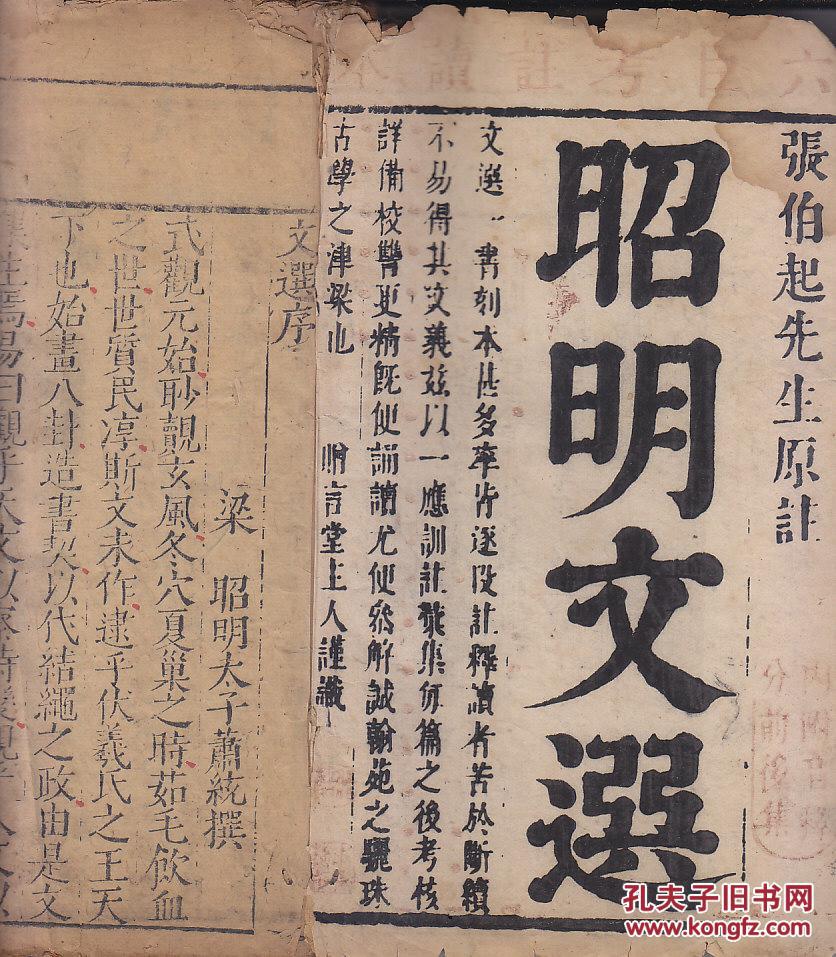 六臣彙註讀本
張伯起先生原註
昭明文選
文選一書刻本甚多率皆逐段註釋讀者苦於斷續
不易得其文義茲以一應訓註彙集每篇之後考核
詳備校讐更精既便誦讀尤便參解誠翰苑之驪珠
古學之津梁也 贈言堂主人謹識
文選序
梁 昭明太子蕭統撰
式觀元始眇覿玄風冬穴夏巢之時茹毛飲血
之世世質民淳斯文未作逮乎伏羲氏之王天
下也始畫八卦造書契以代結繩之政由是文
籍生焉易曰觀乎天文以察時變觀乎人文以
孔夫子旧书网
kongfz.com